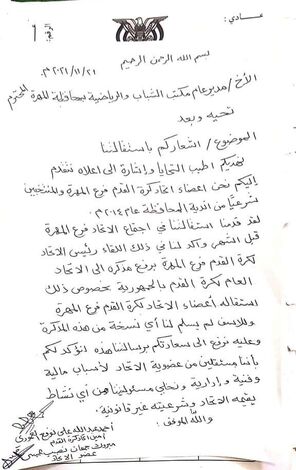 عـادي :
بسم الله الرحمن الرحيم
٢٠٢١/١١/٢١م
الأخ / مدير عام مكتب الشباب والرياضية بمحافظة المهرة المحترم
تحيه وبعد
الموضوع / اشعاركم باستقالتنا
نهديكم اطيب التحايا وإشارة الى اعلاه نتقدم
إليكم نحن اعضاء اتحاد كرة القدم فرع المهرة والمنتخبين
شرعياً من اندية المحافظة عام ٢٠١٤م
لقد قدمنا استقالتنا في اجتماع الاتحاد فرع المهرة
قبل الشهر وأكد لنا في ذلك اللقاء رئيس الاتحاد
كرة القدم فرع المهرة برفع مذكره الى الاتحاد
العام بكرة القدم بالجمهورية بخصوص ذلك
استقاله أعضاء الاتحاد لكرة القدم فرع المهرة
وللاسف لم يسلم لنا أي نسخة من هذه المذكرة
وعليه نرفع الى سعادتكم برسالتنا هذه نؤكد لكم
بأننا مستقلين من عضوية الاتحاد لأسباب مالية
وفنية وإدارية ونخلي مسئوليتنا من أي نشاط
يقيمه الاتحاد وشرعيته غير قانونية.
والله الموفق،
أحمد عبدالله علي
أمين اتحاد كرة القدم
مبروك جمعان نصيب
عضو الاتحاد